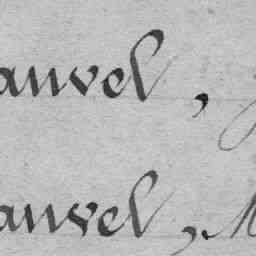 auvel,
auvel, M